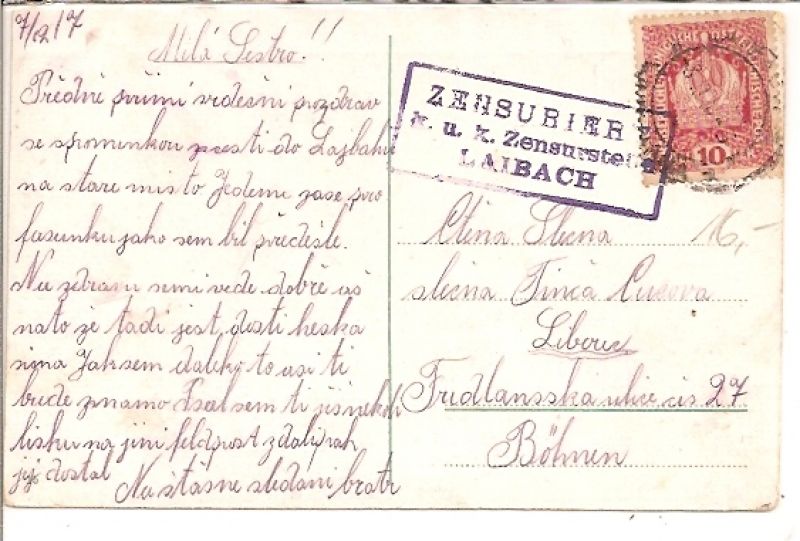 7/2 17
Milá Sestro!!
Předně přiimi vrdešni pozdrav
se spomínkou z cesti do Lajbahu
na stare misto Jedeme zase pro
fasunku jako sem bil předešle.
Na zdravi semi vede dobře až
nato že tadi jest dosti heska
zima Jak sem daleko to asi ti
bude znamo Psal sem ti již nekoli
lisku na jini feldpost zdalipak
jej dostal
Na štasne sledáni bratr
ZENSURIERT
k. u. k. Zensurstelle
LAIBACH
10
Ctěna Slecna 16,-
slečna Tinča Cucova
Liberec
Fridlansska ulice čis 27
Böhmen